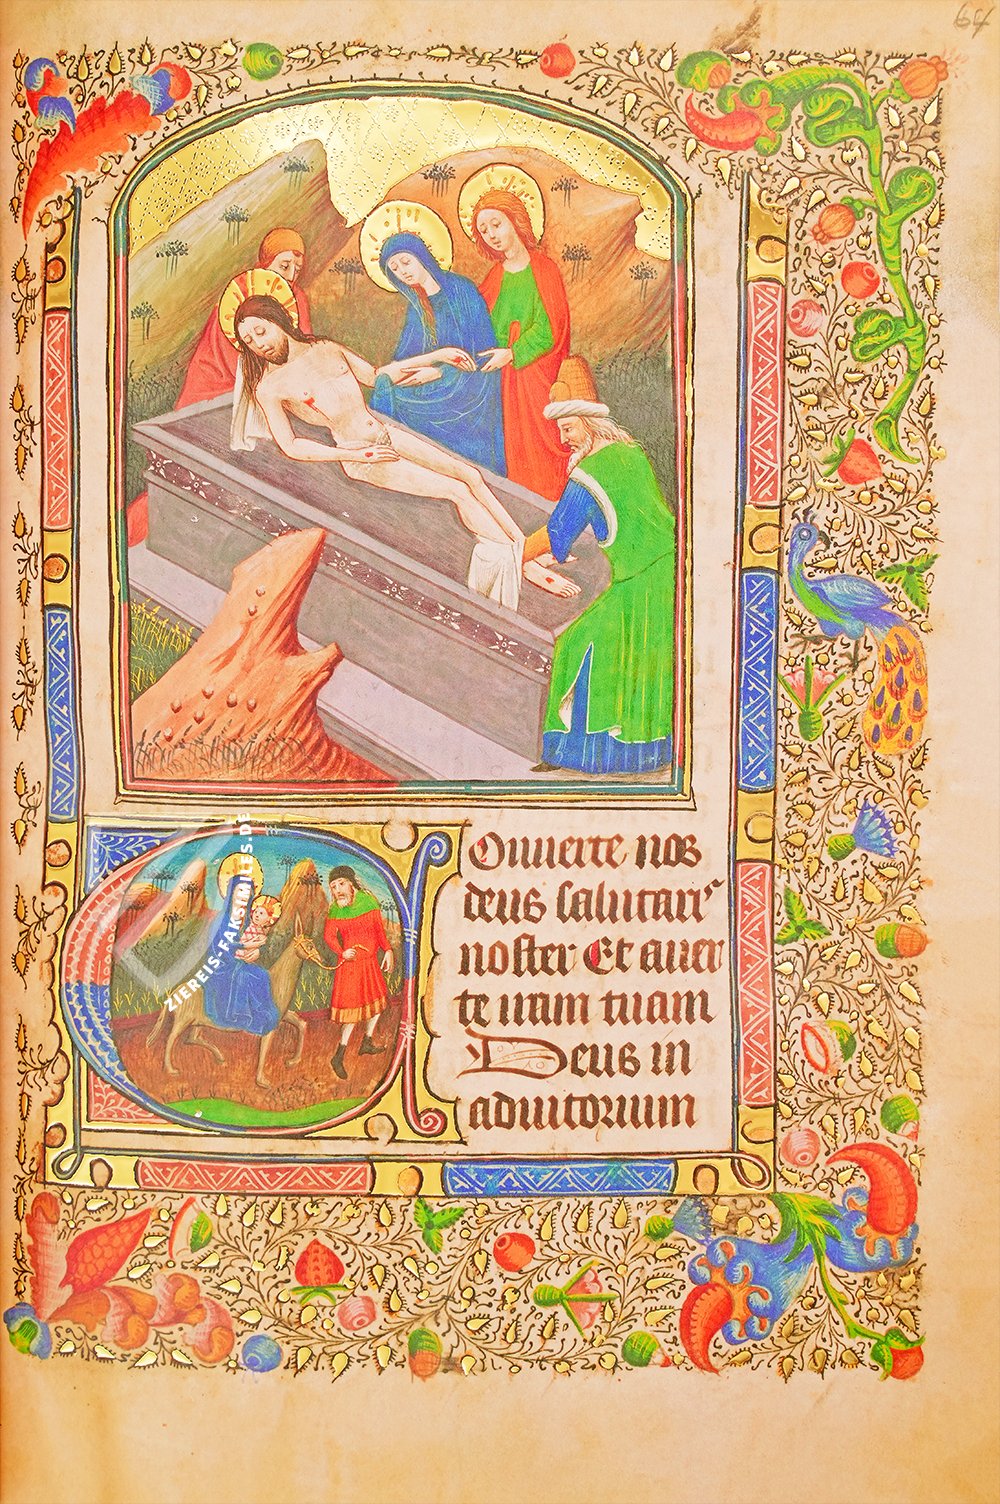 64
Conuerte nos
deus salutaris
noster Et auer
te iram tuam
Deus in
adiutorium
ZIEREIS-FAKSIMILES.DE